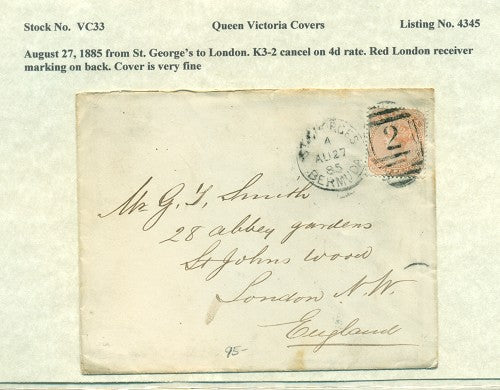 Stock No.  VC33    Queen Victoria Covers    Listing No. 4345
August 27, 1885 from St. George's to London. K3-2 cancel on 4d rate. Red London receiver
marking on back. Cover is very fine
ST. GEORGES
A
AU 27
85
BERMUDA
2
Mr G. T. Smith
28 abbey gardens
St Johns Wood
London N.W.
England
95-